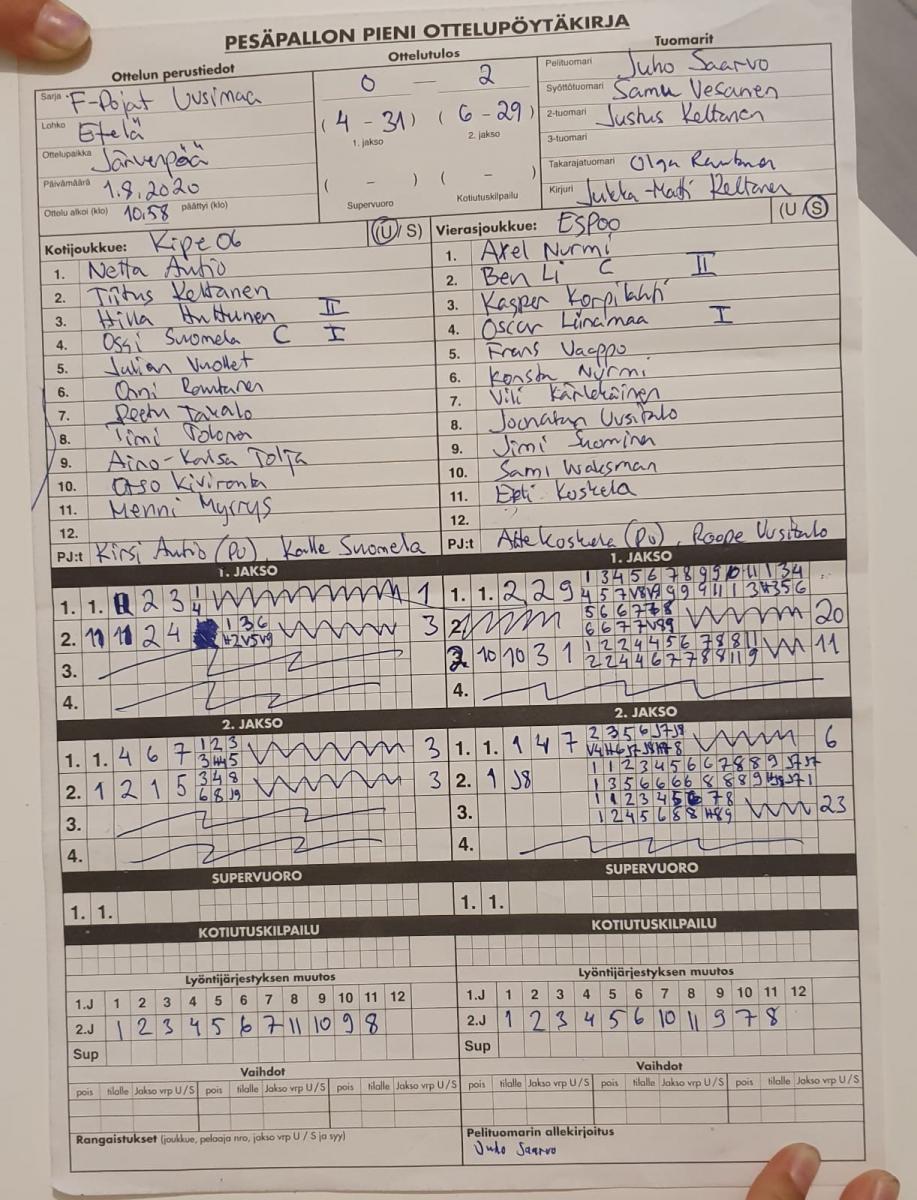 PESÄPALLON PIENI OTTELUPÖYTÄKIRJA
Ottelun perustiedot
Sarja F-Pojat Uusimaa
Lohko Etelä
Ottelupaikka Järvenpää
Päivämäärä 1.8.2020
Ottelu alkoi (klo) 10.58 päättyi (klo)
Ottelutulos
0 — 2
(4 - 31) (6 - 29)
1. jakso 2. jakso
( - ) ( - )
Supervuoro Kotiutuskilpailu
Tuomarit
Pelituomari Juho Saarvo
Syöttötuomari Samu Vesanen
2-tuomari Justus Keltanen
3-tuomari
Takarajatuomari Olga
Kirjuri Jukka-Matti Keltanen
Kotijoukkue: Kipe 06 (U / S)
1. Netta Autio
2. Tiitus Keltanen
3. Hilla Huttunen II
4. Ossi Suomela C I
5. Julian Vuollet
6. Onni Rantanen
7. Peetu Takalo
8. Timi Tolonen
9. Aino-Kaisa Tolja
10. Otso Kivironta
11. Menni Myrrys
12.
PJ:t Kirsi Autio (PU), Kalle Suomela
Vierasjoukkue: ESPOO (U / S)
1. Axel Nurmi
2. Ben Li C II
3. Kasper Korpilahti
4. Oscar Liinamaa I
5. Frans Vaappo
6. Konsta Nurmi
7. Vili
8. Joonatan Uusitalo
9. Jimi Suominen
10. Sami Waksman
11. Eeti Koskela
12.
PJ:t Atte Koskela (PU), Roope Uusitalo
1. JAKSO
1. 1. 2 3 1 4 1
2. 11 11 2 4 1 3 6 3
3.
4.
1. JAKSO
1. 1. 2 2 9
2. 20
3 10 10 3 1 11
4.
2. JAKSO
1. 1. 4 6 7 1 2 3 3
2. 1 2 1 5 3 4 8 6 8 J9 3
3.
4.
2. JAKSO
1. 1. 1 4 7 6
2. 1 J8
3. 23
4.
SUPERVUORO
1. 1.
SUPERVUORO
1. 1.
KOTIUTUSKILPAILU
KOTIUTUSKILPAILU
Lyöntijärjestyksen muutos
1.J 1 2 3 4 5 6 7 8 9 10 11 12
2.J 1 2 3 4 5 6 7 11 10 9 8
Sup
Vaihdot
pois tilalle Jakso vrp U / S pois tilalle Jakso vrp U / S pois tilalle Jakso vrp U / S
Rangaistukset (joukkue, pelaaja nro, jakso vrp U / S ja syy)
Lyöntijärjestyksen muutos
1.J 1 2 3 4 5 6 7 8 9 10 11 12
2.J 1 2 3 4 5 6 10 11 9 7 8
Sup
Vaihdot
pois tilalle Jakso vrp U / S pois tilalle Jakso vrp U / S pois tilalle Jakso vrp U / S
Pelituomarin allekirjoitus
Juho Saarvo